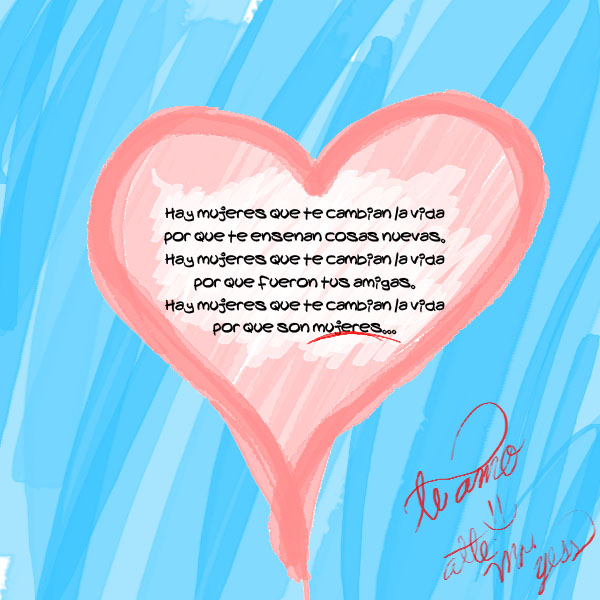 Hay mujeres que te cambian la vida
por que te ensenan cosas nuevas.
Hay mujeres que te cambian la vida
por que fueron tus amigas.
Hay mujeres que te cambian la vida
por que son mujeres...
te amo
atte: Mr. yess